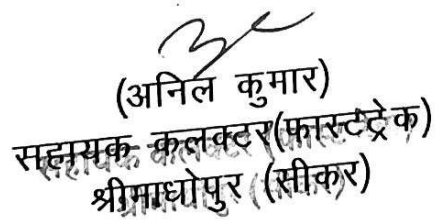 (अनिल कुमार)
सहायक कलक्टर(फास्टट्रेक)
श्रीमाधोपुर (सीकर)